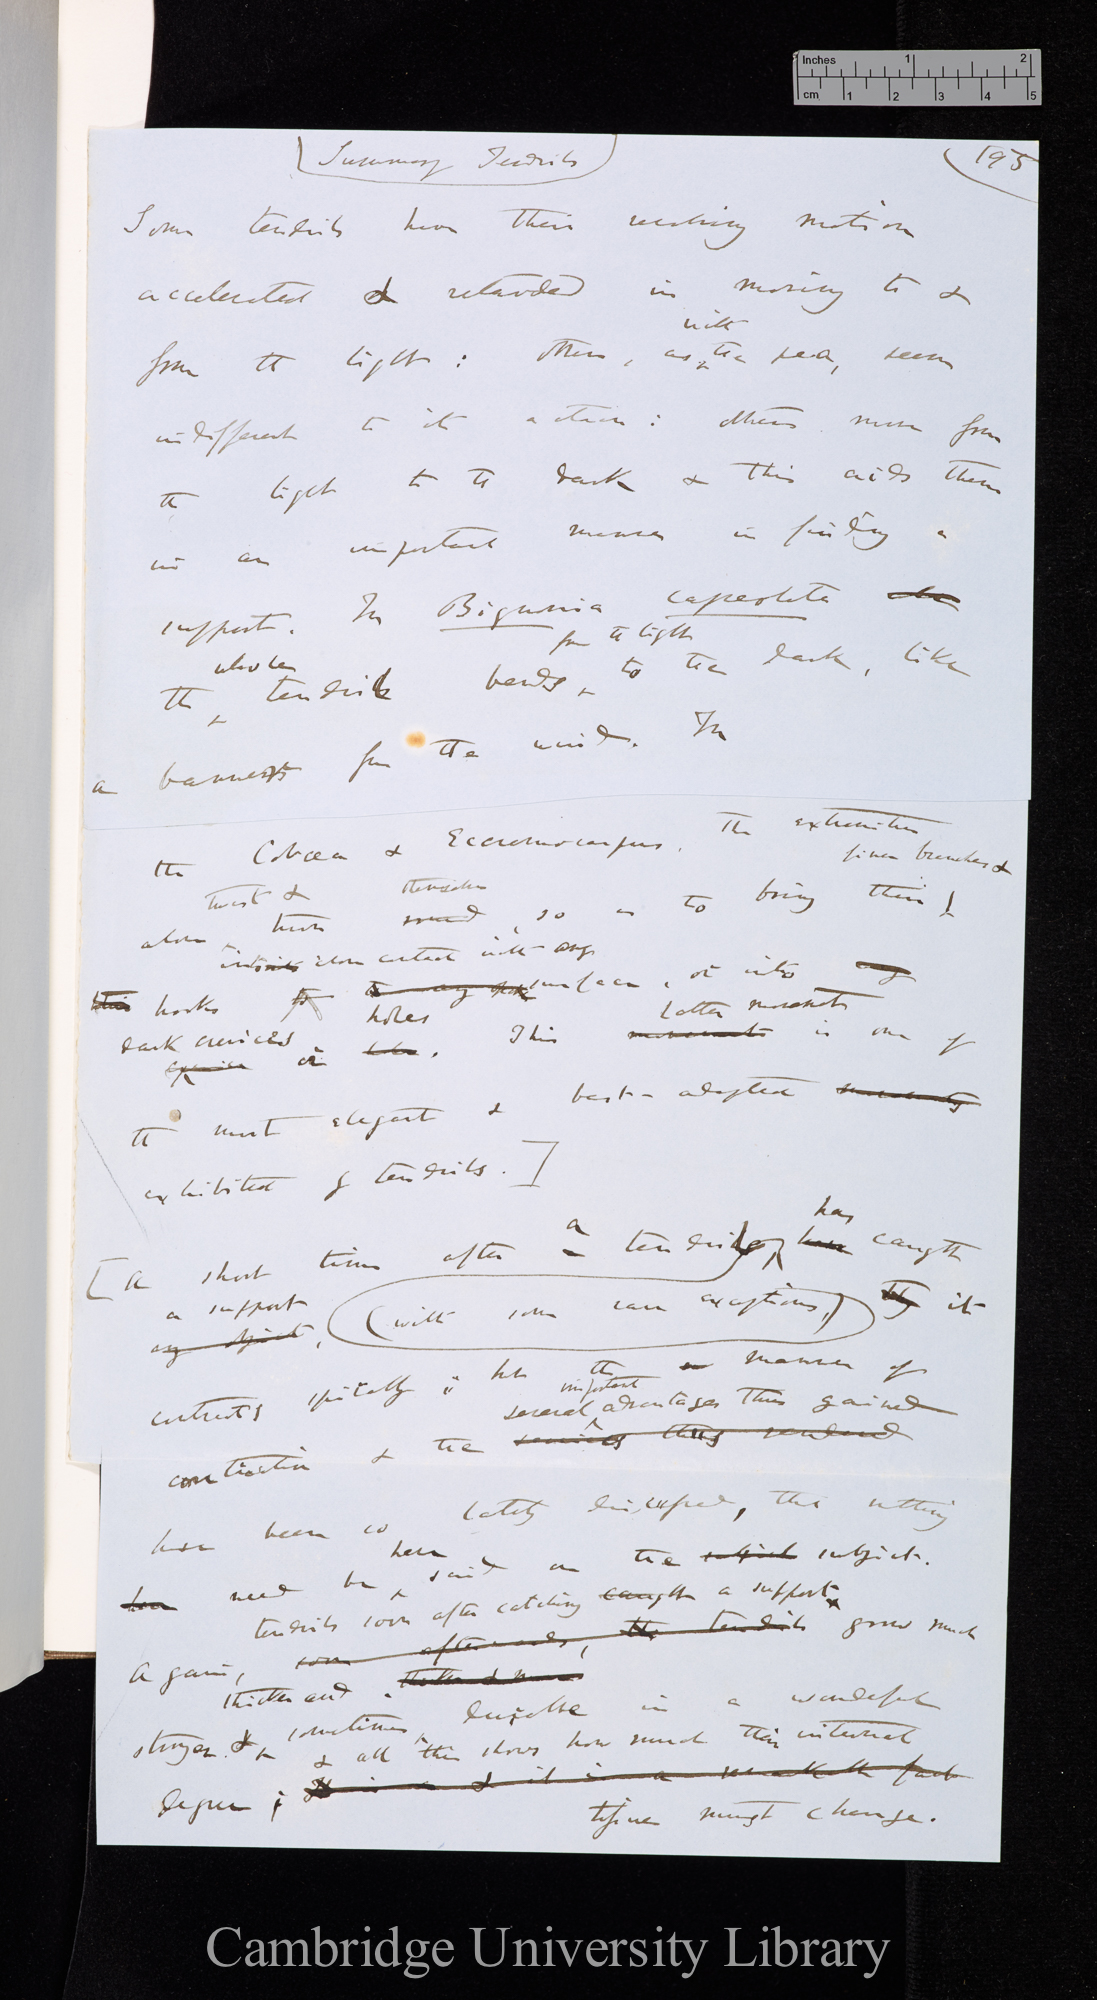 Inches 1 2
cm 1 2 3 4 5
Summary Tendrils
195
Some tendrils have their revolving motion
accelerated & retarded in moving to &
with
from the light : others, as the pea, seem
indifferent to its action : others move from
the light to the dark & this aids them
in an important manner in finding a
support. In Bignonia capreolata
whole from the light
the tendril bends to the dark, like
a banner from the wind. In
the Cobæa & Eccremocarpus. the extremities
finer branches &
twist & themselves
alone turn round, so as to bring their
into close contact with any
hooks surface, or into any
holes latter movement
dark crevices
crevice or hole. This movements is one of
the most elegant & best-adapted movements
exhibited by tendrils.
has
a
A short time after a tendril, have caught
a support
any object, (with some rare exceptions,) they it
contracts spirally ; but the manner of
important
several advantages thus gained
contraction & the services thus rendered
have been so lately discussed, that nothing
here
need be said on the subject subject.
tendrils soon after catching caught a support
Again, soon afterwards, the tendrils grow much
thicker and
stronger. & sometimes durable in a wonderful
& all this shows how much their internal
degree ;
tissues must change.
Cambridge University Library